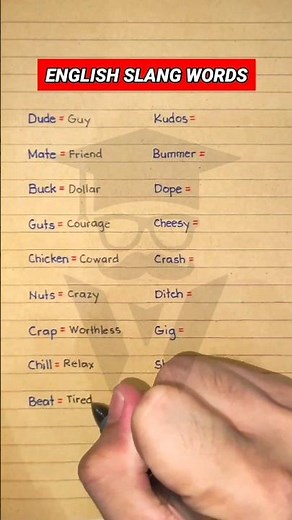 ENGLISH SLANG WORDS
Dude = Guy
Mate = Friend
Buck = Dollar
Guts = Courage
Chicken = Coward
Nuts = Crazy
Crap = Worthless
Chill = Relax
Beat = Tired
Kudos =
Bummer =
Dope =
Cheesy =
Crash =
Ditch =
Gig =